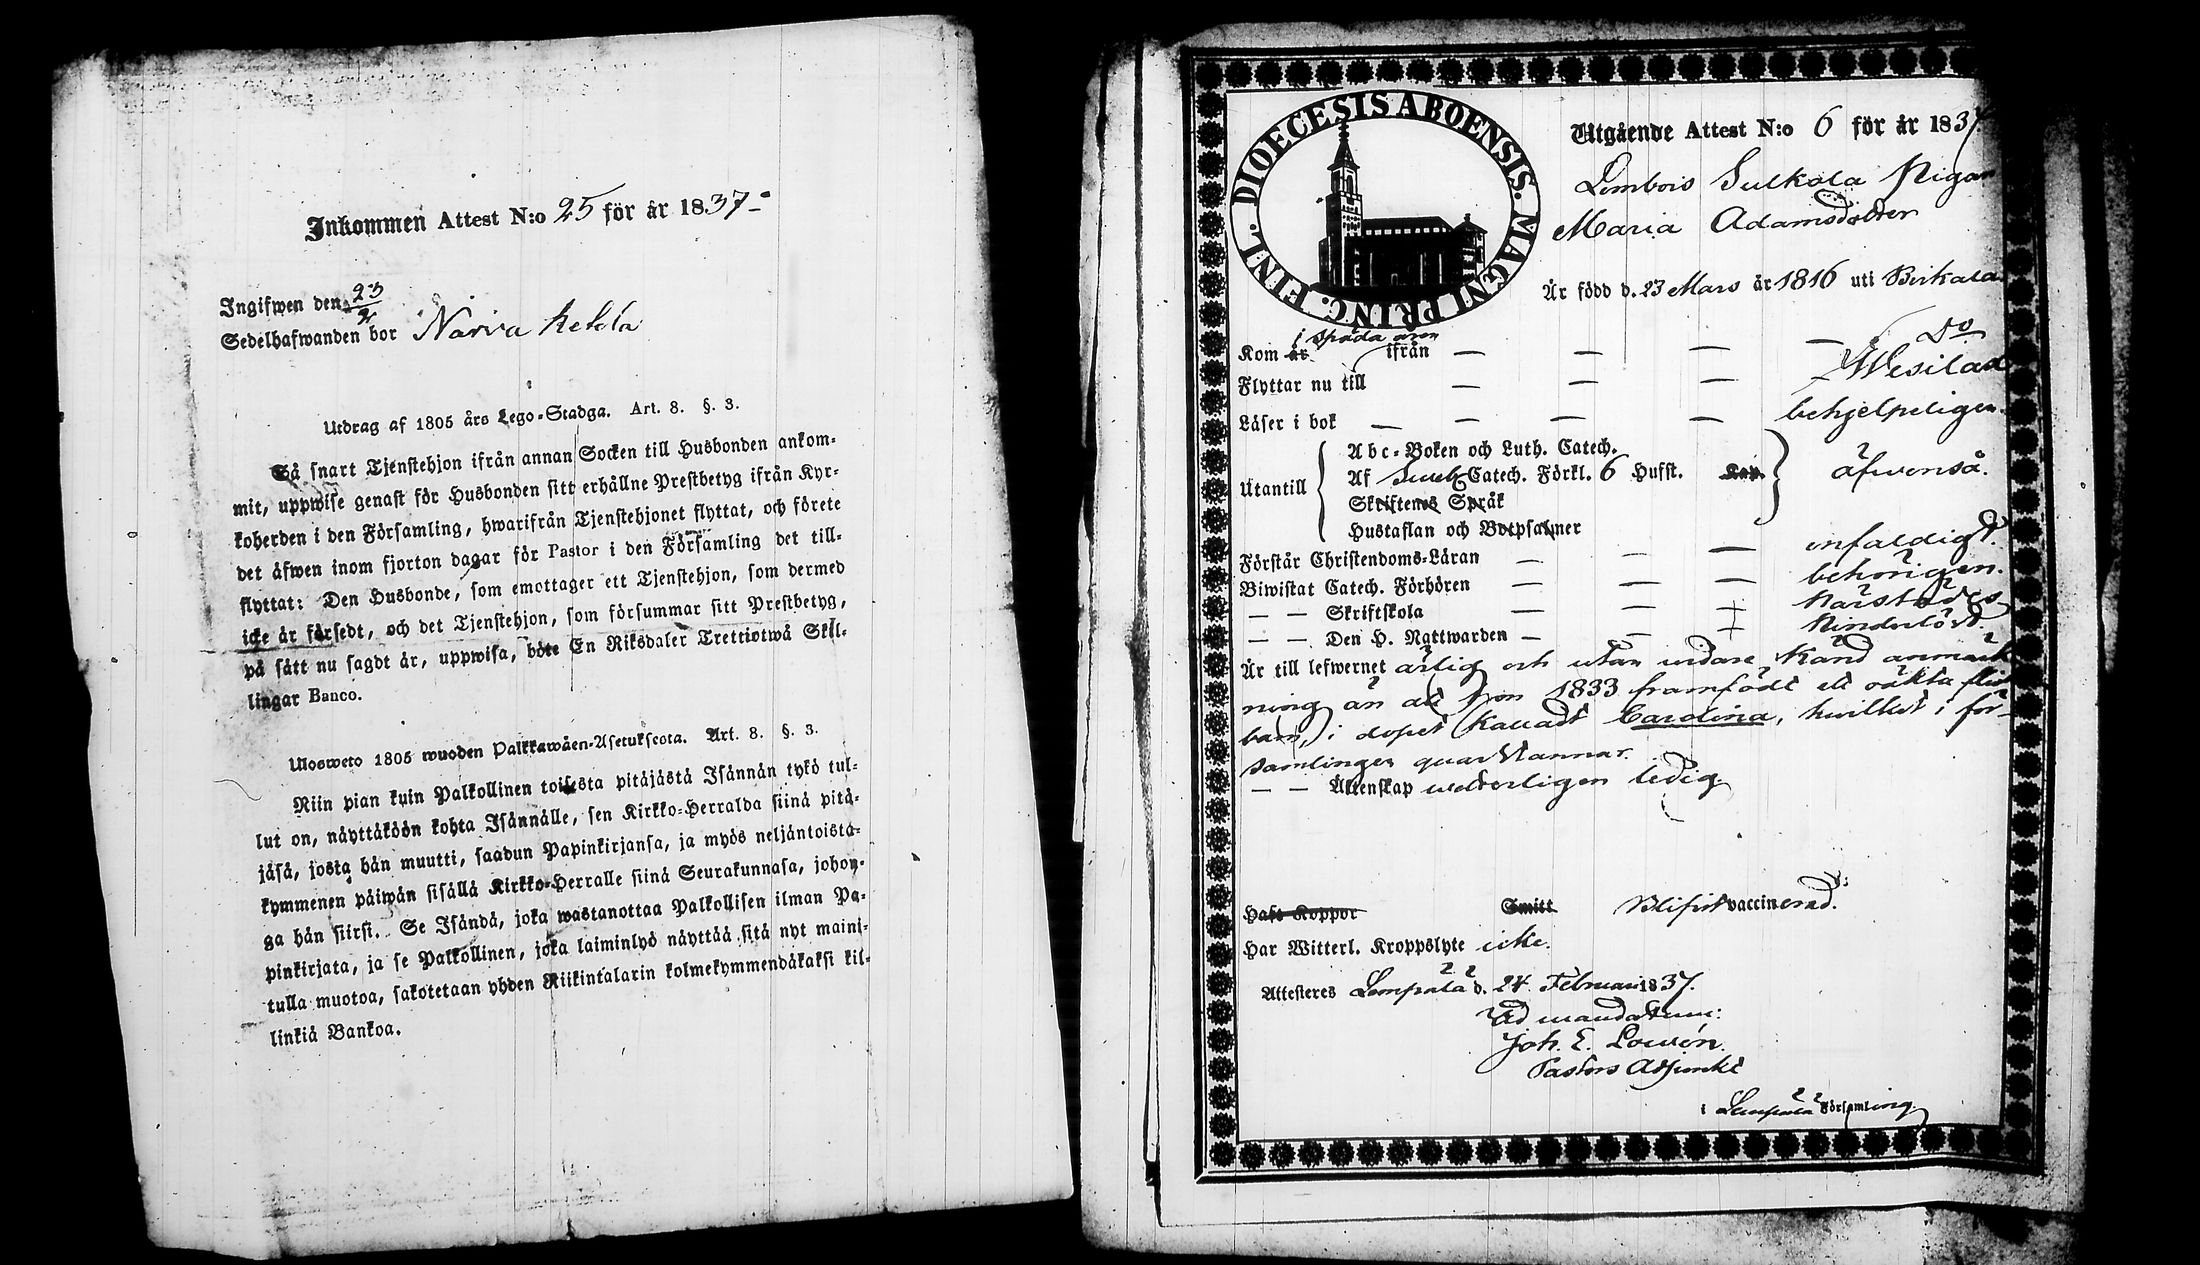 Inkommen Attest N:o 25 för år 1837
Ingifwen den 23
Sedelhafwanden bor Narva Ketola
Utdrag af 1805 års Lego-Stadga. Art. 8. §. 3.
Så snart Tjenstehjon ifrån annan Socken till Husbonden ankom-
mit, uppwise genast för Husbonden sitt erhållne Prestbetyg ifrån Kyr-
koherden i den Församling, hwarifrån Tjenstehjonet flyttat, och förete
det äfwen inom fjorton dagar för Pastor i den Församling det till-
flyttat: Den Husbonde, som emottager ett Tjenstehjon, som dermed
icke är försedt, och det Tjenstehjon, som försummar sitt Prestbetyg,
på sätt nu sagdt är, uppwisa, böte En Riksdaler Trettiotwå Skil-
lingar Banco.
Ulosweto 1805 wuoden Palkkawäen-Asetuksesta. Art. 8. §. 3.
Niin pian kuin Palkollinen toisesta pitäjästä Isännän tykö tul-
lut on, näyttäköön kohta Isännälle, sen Kirkko-Herralda siinä pitä-
jäsä, josta hän muutti, saadun Papinkirjansa, ja myös neljäntoista-
kymmenen päiwän sisällä Kirkko-Herralle siinä Seurakunnasa, johon-
ga hän siirsi. Se Isändä, joka wastanottaa Palkollisen ilman Pa-
pinkirjata, ja se Palkollinen, joka laiminlyö näyttää sitä nyt maini-
tulla muotoa, sakotetaan yhden Riikintalarin kolmekymmendäkaksi kil-
linkiä Bankoa.
DIOECESIS ABOENSIS. MAGNI PRINC. FINL.
Utgående Attest N:o 6 för år 1837.
Lembois Sulkola Pigan
Maria Adamsdotter
Är född d. 23 Mars år 1816 uti Birkala
i späda åren
Kom år ifrån — — — — Do
Flyttar nu till — — — Wesilax
Läser i bok — — — behjelpeligen.
Utantill
Abc-Boken och Luth. Catech.
Af Sweb. Catech. Förkl. 6 Hufst. Kap.
Skriftenes Språk
Hustaflan och Botpsalmer
äfvenså.
Förstår Christendoms-Läran — — — enfaldigt.
Biwistat Catech. Förhören — — — behörigen.
— — Skriftskola — —
— — Den H. Nattwarden — — Hinderlöst.
Är till lefwernet ärlig och utan widare känd anmärk
ning än att hon 1833 framfödt ett oäkta flick
barn, i dopet kalladt Carolina, hwilket i för-
samlingen quarstannar.
— — Äktenskap wetterligen ledig
Haft Koppor Smitt Blifvit vaccinerad.
Har Witterl. Kroppslyte icke.
Attesteres Lempälä d. 24 Februari 1837.
Ad mandatum:
Joh. E. Lowén.
Pastors Adjunkt
i Lempälä Församling.